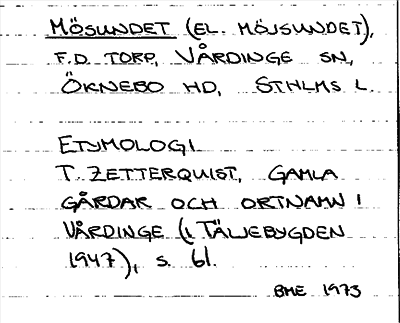 MÖSUNDET (EL. MÖJSUNDET),
F.D. TORP, VÅRDINGE SN,
ÖKNEBO HD, STHLMS L.
ETYMOLOGI
T. ZETTERQUIST, GAMLA
GÅRDAR OCH ORTNAMN I
VÅRDINGE (I TÄLJEBYGDEN
1947), S. 61.
BME 1973